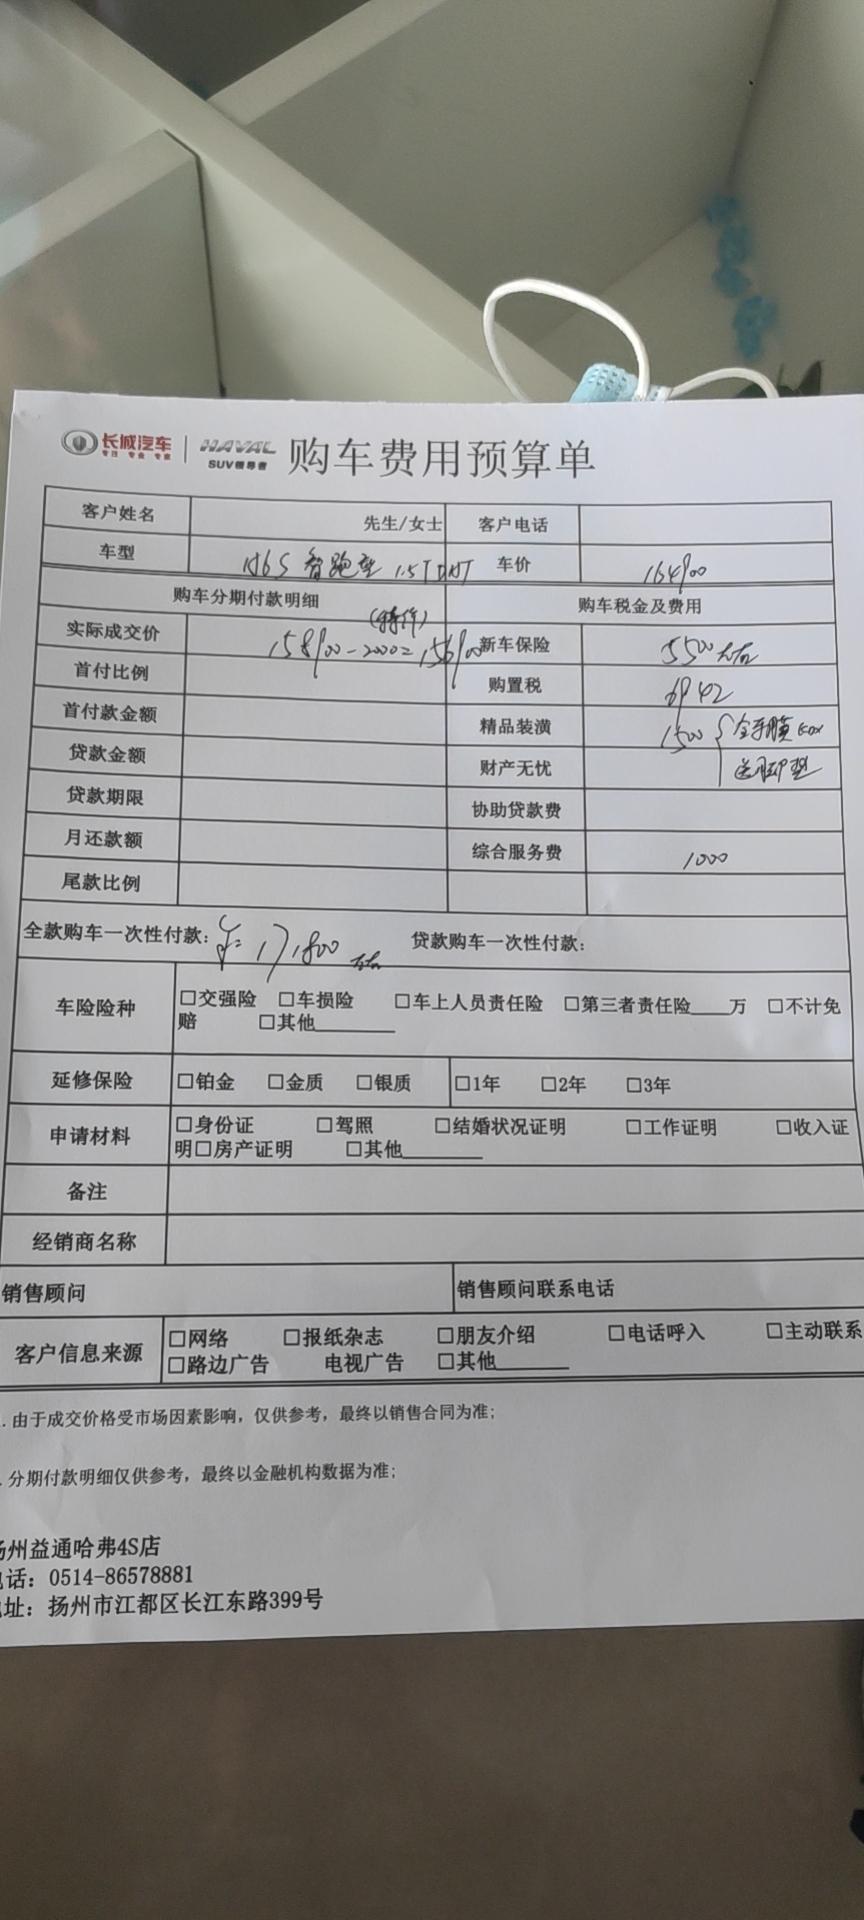 长城汽车
专注 专业 专家
HAVAL
SUV领导者
购车费用预算单
客户姓名 先生/女士 客户电话
车型 H6S 智跑型 1.5T DHT 车价 164900
购车分期付款明细 购车税金及费用
实际成交价 158900-2000=156900 新车保险 5500左右
首付比例 购置税 6942
首付款金额 精品装潢 1500 { 全车膜
贷款金额 财产无忧 送脚垫
贷款期限 协助贷款费
月还款额 综合服务费 1000
尾款比例
全款购车一次性付款: ¥: 171800 左右 贷款购车一次性付款:
车险险种 □交强险 □车损险 □车上人员责任险 □第三者责任险____万 □不计免
赔 □其他________
延修保险 □铂金 □金质 □银质 □1年 □2年 □3年
申请材料 □身份证 □驾照 □结婚状况证明 □工作证明 □收入证
明□房产证明 □其他________
备注
经销商名称
销售顾问 销售顾问联系电话
客户信息来源 □网络 □报纸杂志 □朋友介绍 □电话呼入 □主动联系
□路边广告 电视广告 □其他_______
.由于成交价格受市场因素影响，仅供参考，最终以销售合同为准;
.分期付款明细仅供参考，最终以金融机构数据为准;
扬州益通哈弗4S店
电话: 0514-86578881
地址: 扬州市江都区长江东路399号